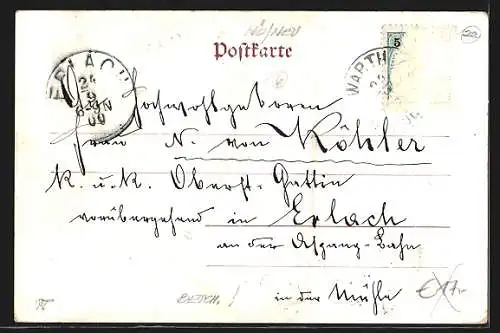 NÖ/NEU
Postkarte
5
ERLACH
24
9
00
WARTH
Hochwohlgeboren
Frau N. von Köhler
K. u. K. Oberst-Gattin
vorübergehend in Erlach
an der Aspang-Bahn
in der Mühle
€ 17.-